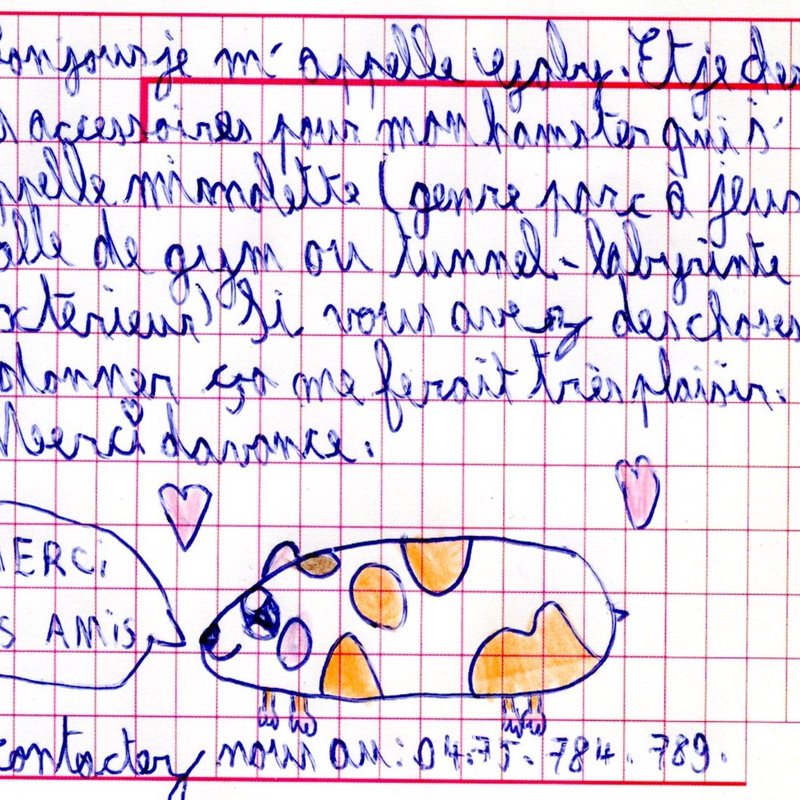 onjours je m'appelle eyaby. Et je de
s accessoires pour mon hamster qui s'
pelle mimolette (genre parc à jeux
alle de gym ou tunnel-labyrinte
xtérieur) Si vous avez des choses
donner ça me ferait très plaisir.
Merci d'avance.
MERCi
S AMiS
contacter nous au: 04.75.784.789.